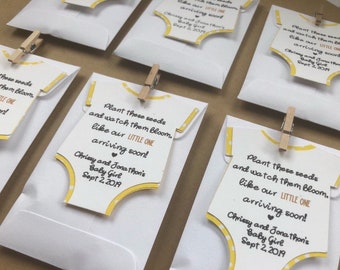 Plant these seeds
and watch them bloom,
like our LITTLE ONE
arriving soon!
Chrissy and Jonathon's
Baby Girl
Sept 2, 2019
Plant these seeds
and watch them bloom,
like our LITTLE ONE
arriving soon!
Chrissy and Jonathon's
Baby Girl
Sept 2, 2019
Plant these seeds
and watch them bloom,
like our LITTLE ONE
arriving soon!
Chrissy and Jonathon's
Baby Girl
Sept 2, 2019